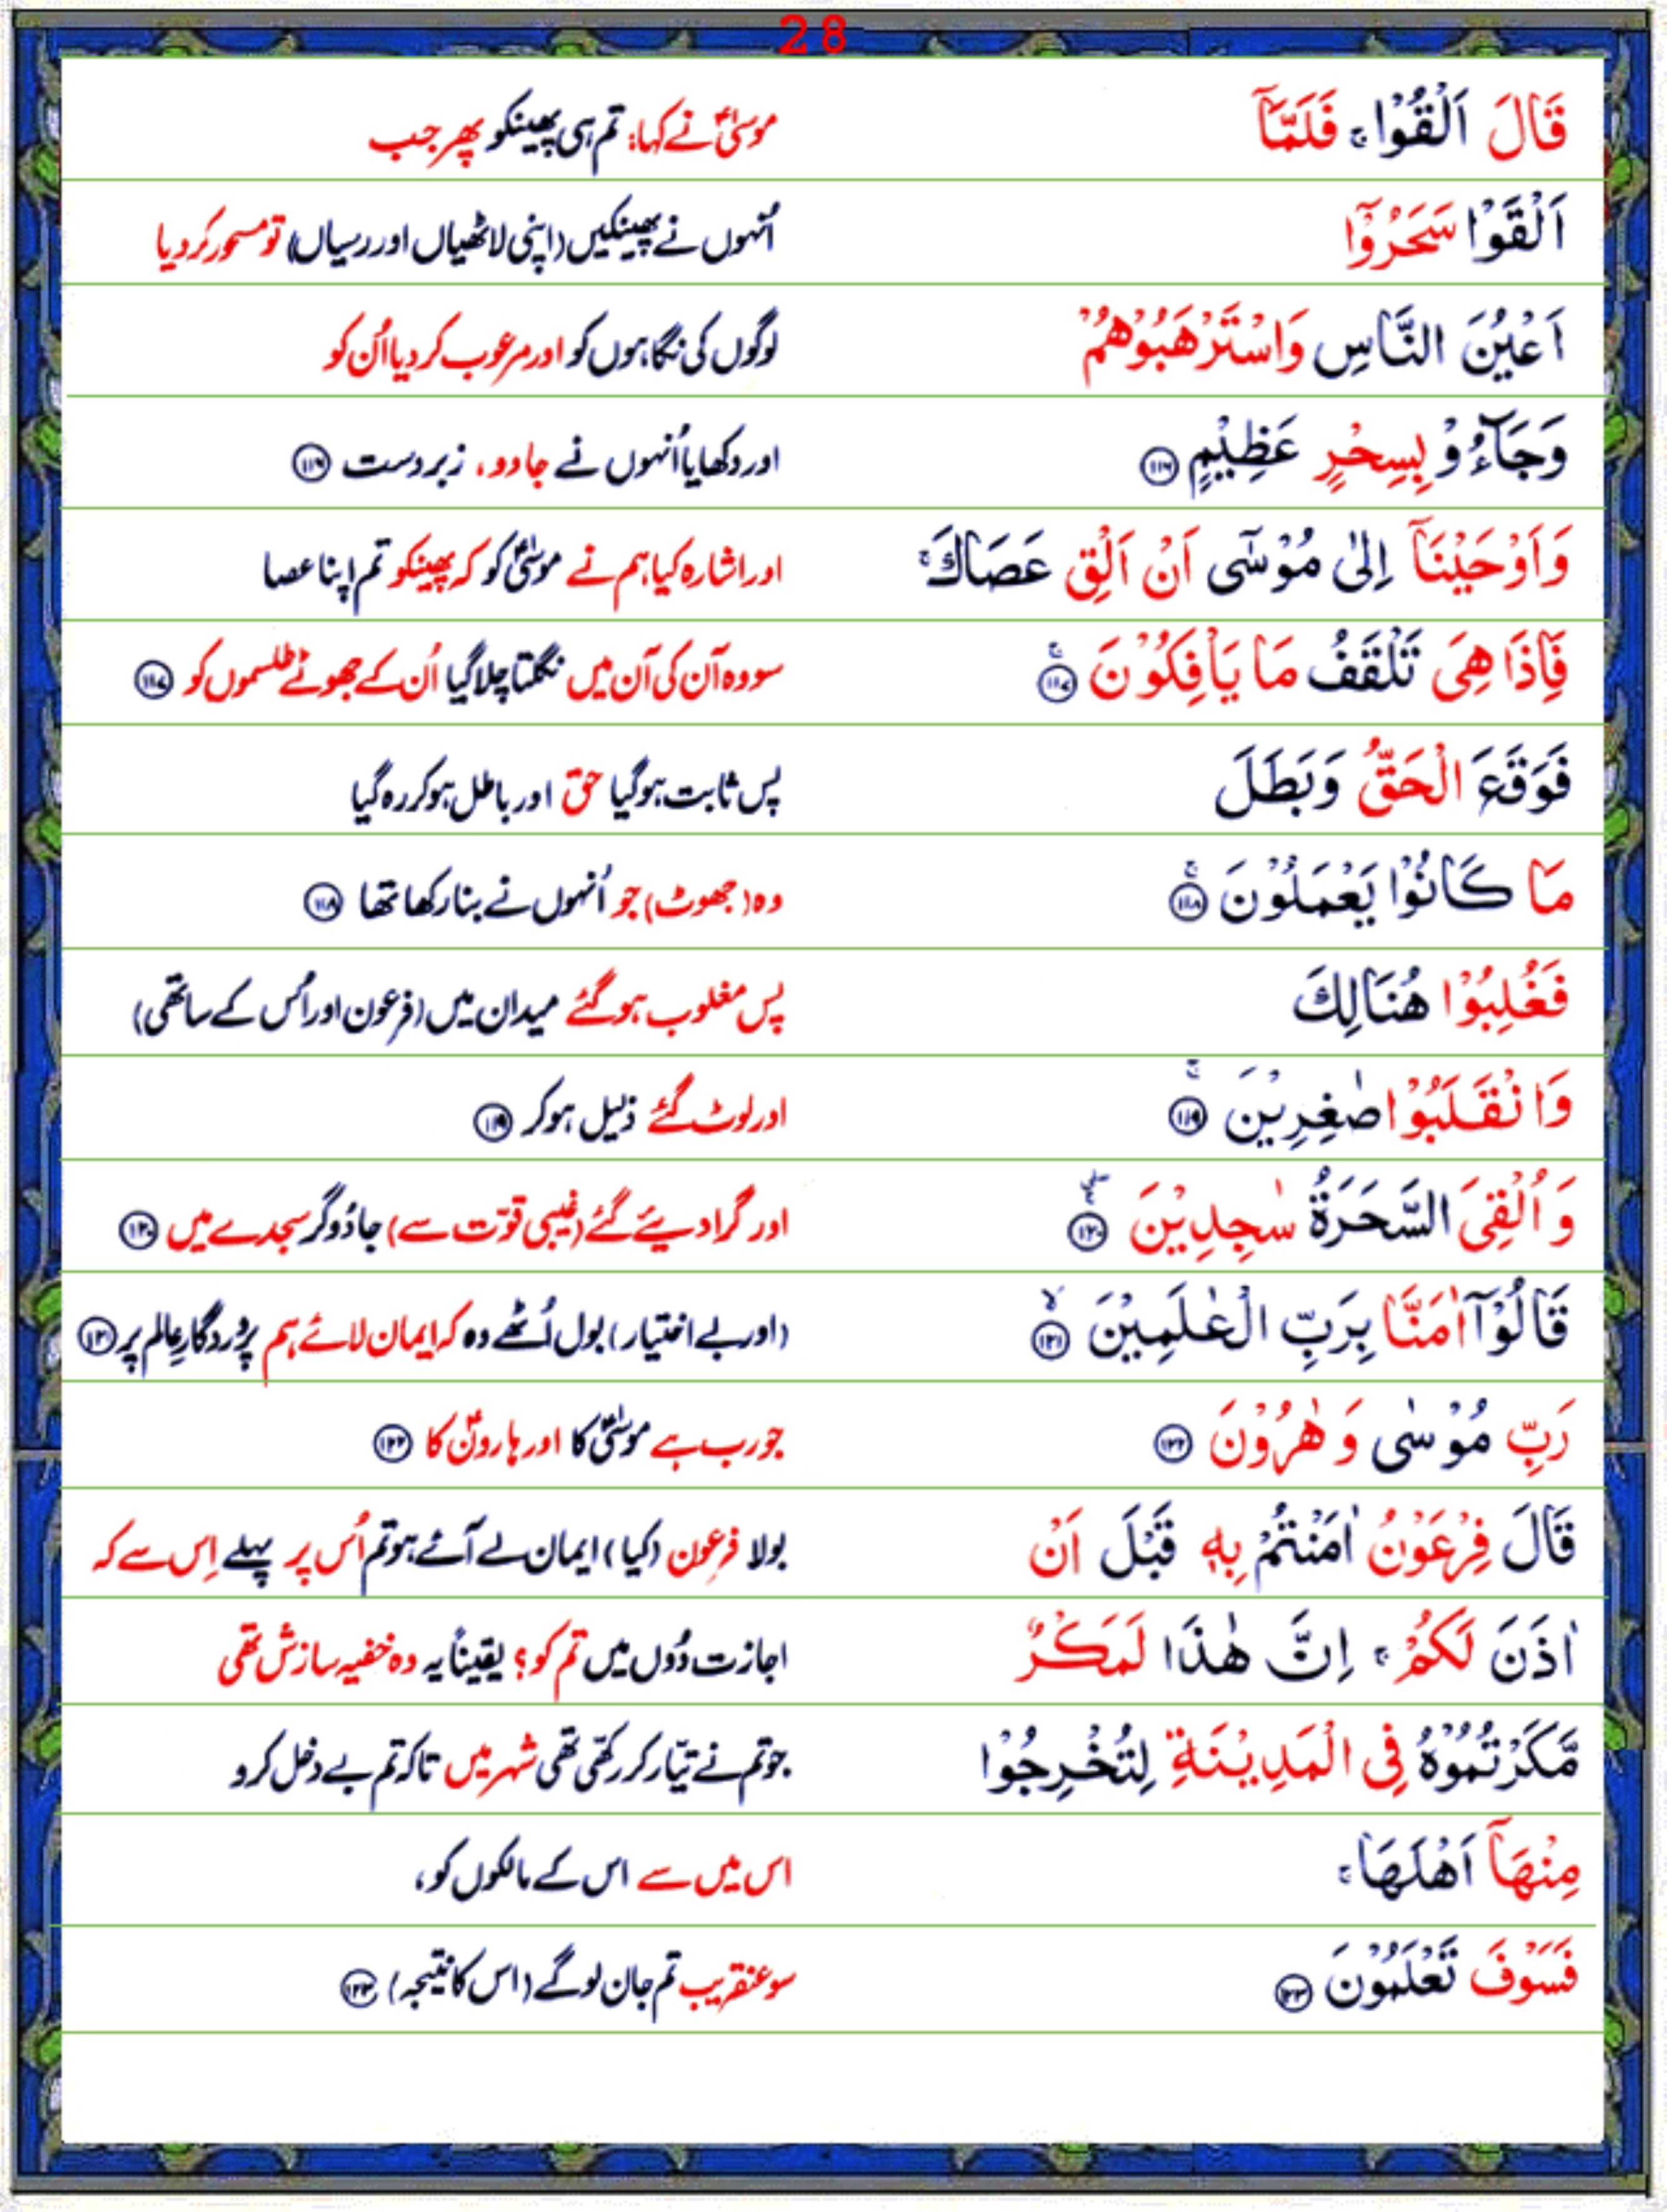 28
قَالَ اَلْقُوْا ۚ فَلَمَّاۤ موسیٰؑ نے کہا: تم ہی پھینکو پھر جب
اَلْقَوْا سَحَرُوْۤا اُنہوں نے پھینکیں (اپنی لاٹھیاں اور رسیاں) تو مسحور کر دیا
اَعْیُنَ النَّاسِ وَاسْتَرْهَبُوْهُمْ لوگوں کی نگاہوں کو اور مرعوب کر دیا اُن کو
وَجَآءُوْ بِسِحْرٍ عَظِیْمٍ ۝۱۱۶ اور دکھایا اُنہوں نے جادو، زبردست ۝۱۱۶
وَاَوْحَیْنَاۤ اِلٰی مُوْسٰۤی اَنْ اَلْقِ عَصَاكَ ۚ اور اشارہ کیا ہم نے موسیٰؑ کو کہ پھینکو تم اپنا عصا
فَاِذَا هِیَ تَلْقَفُ مَا یَاْفِكُوْنَ ۝۱۱۷ۚ سو وہ آن کی آن میں نگلتا چلا گیا اُن کے جھوٹے طلسموں کو ۝۱۱۷
فَوَقَعَ الْحَقُّ وَبَطَلَ پس ثابت ہو گیا حق اور باطل ہو کر رہ گیا
مَا كَانُوْا یَعْمَلُوْنَ ۝۱۱۸ۚ وہ (جھوٹ) جو اُنہوں نے بنا رکھا تھا ۝۱۱۸
فَغُلِبُوْا هُنَالِكَ پس مغلوب ہو گئے میدان میں (فرعون اور اُس کے ساتھی)
وَانْقَلَبُوْا صٰغِرِیْنَ ۝۱۱۹ۚ اور لوٹ گئے ذلیل ہو کر ۝۱۱۹
وَاُلْقِیَ السَّحَرَةُ سٰجِدِیْنَ ۝۱۲۰ۚۖ اور گرا دیئے گئے (غیبی قوّت سے) جادُوگر سجدے میں ۝۱۲۰
قَالُوْۤا اٰمَنَّا بِرَبِّ الْعٰلَمِیْنَ ۝۱۲۱ۙ (اور بے اختیار) بول اُٹھے وہ کہ ایمان لائے ہم پروردگارِ عالم پر ۝۱۲۱
رَبِّ مُوْسٰی وَهٰرُوْنَ ۝۱۲۲ جو رب ہے موسیٰؑ کا اور ہارونؑ کا ۝۱۲۲
قَالَ فِرْعَوْنُ اٰمَنْتُمْ بِهٖ قَبْلَ اَنْ بولا فرعون (کیا) ایمان لے آئے ہو تم اُس پر پہلے اِس سے کہ
اٰذَنَ لَكُمْ ۚ اِنَّ هٰذَا لَمَكْرٌ اجازت دُوں میں تم کو؟ یقیناً یہ وہ خفیہ سازش تھی
مَّكَرْتُمُوْهُ فِی الْمَدِیْنَةِ لِتُخْرِجُوْا جو تم نے تیّار کر رکھّی تھی شہر میں تاکہ تم بے دخل کرو
مِنْهَاۤ اَهْلَهَا ۚ اس میں سے اس کے مالکوں کو،
فَسَوْفَ تَعْلَمُوْنَ ۝۱۲۳ سو عنقریب تم جان لو گے (اس کا نتیجہ) ۝۱۲۳